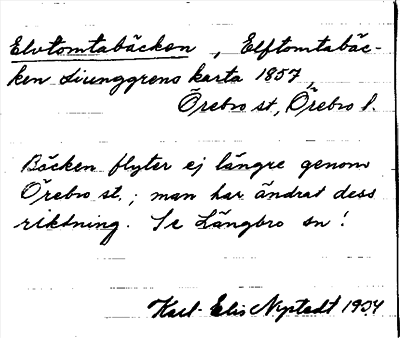 Elvtomtabäcken, Elftomtabäc-
ken Liunggrens karta 1857,
Örebro st, Örebro l.
Bäcken flyter ej längre genom
Örebro st.; man har ändrat dess
riktning. Se Längbro sn!
Karl-Elis Nystedt 1934